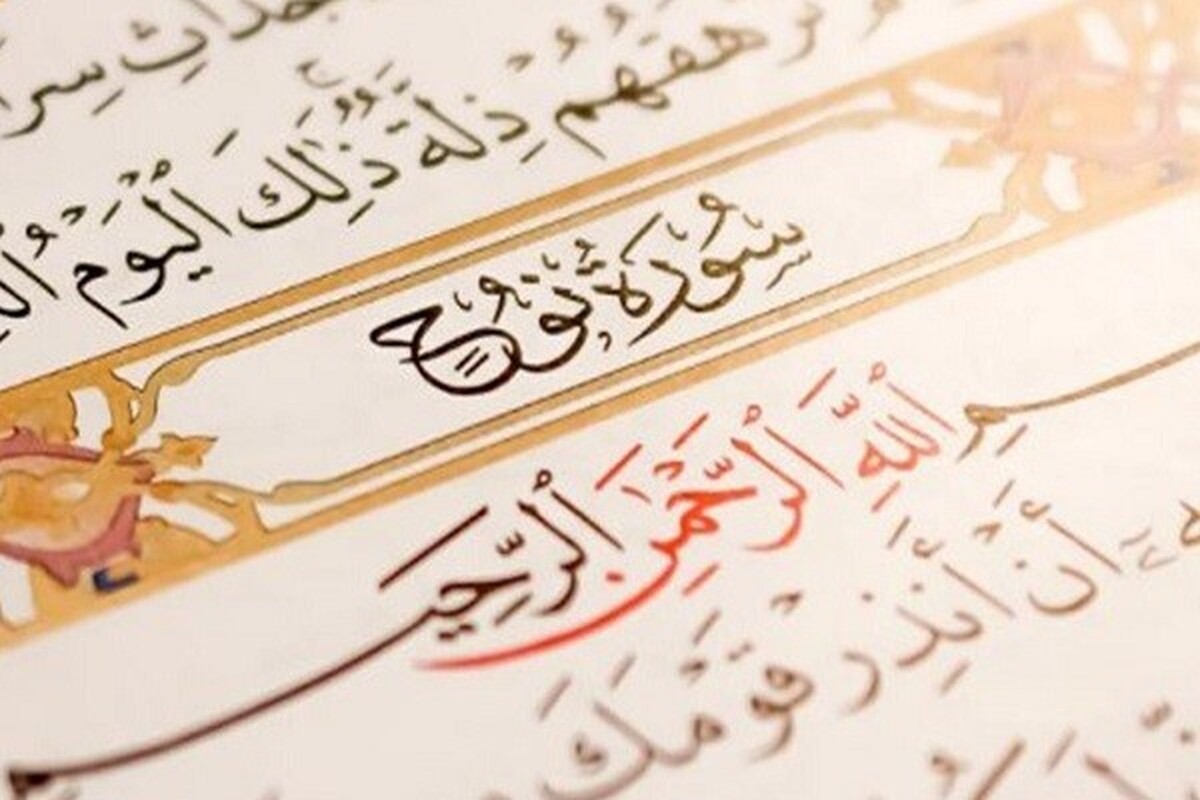 سِرَا
هَقُهُمْ ذِلَّةٌ ذَٰلِكَ ٱلْيَوْمُ
سُورَةُ نُوحٍ
بِسْمِ ٱللَّهِ ٱلرَّحْمَٰنِ ٱلرَّحِيمِ
أَنْ أَنذِرْ قَوْمَكَ